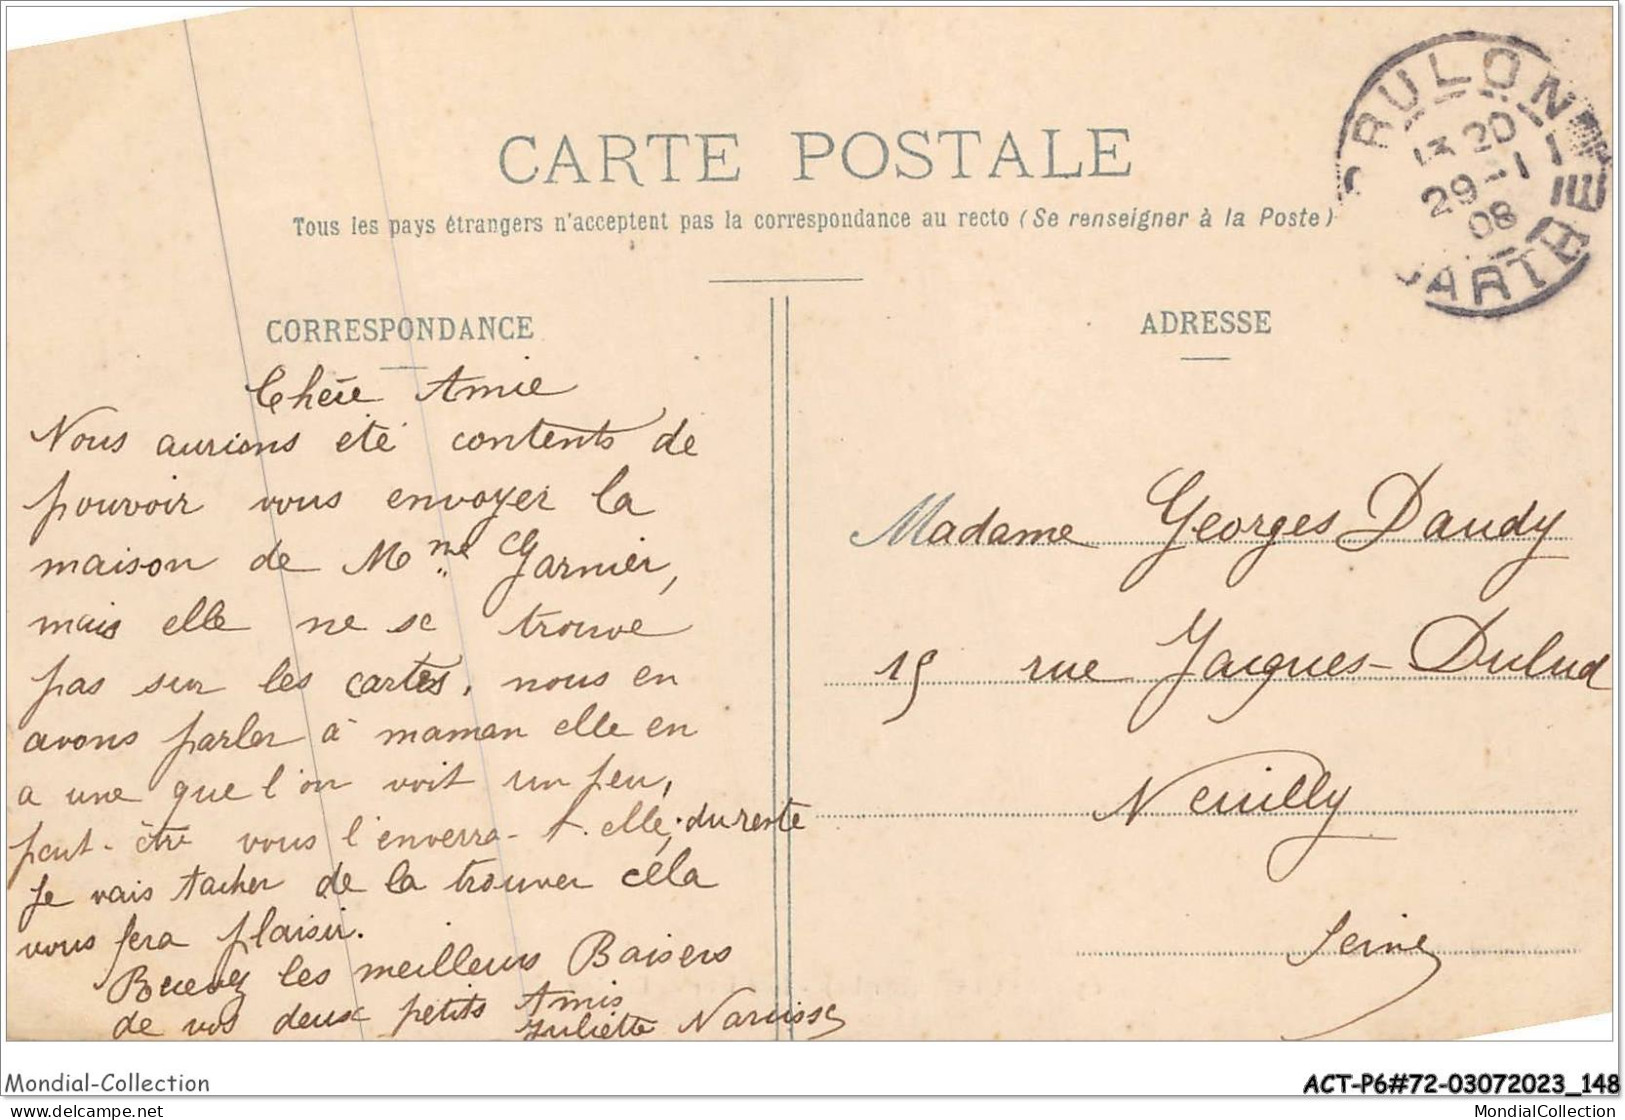 CARTE POSTALE
Tous les pays étrangers n'acceptent pas la correspondance au recto (Se renseigner à la Poste)
BRULON
13 20
29 - 1
08
SARTHE
CORRESPONDANCE
ADRESSE
Chère Amie
Nous aurions été contents de
pouvoir vous envoyer la
maison de Mme Garnier,
mais elle ne se trouve
pas sur les cartes, nous en
avons parler à maman elle en
a une que l'on voit un peu,
peut-être vous l'enverra-t-elle, du reste
je vais tacher de la trouver cela
vous fera plaisir.
Recevez les meilleurs Baisers
de vos deux petits Amis
Juliette Narcisse
Madame Georges Dandy
15 rue Jacques-Dulud
Neuilly
Seine
Mondial-Collection
ACT-P6#72-03072023_148
www.delcampe.net
MondialCollection